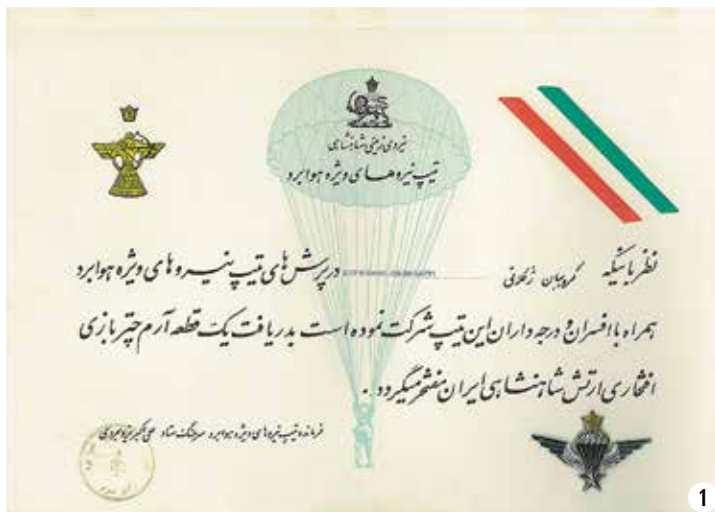 نیروی زمینی شاهنشاهی
تیپ نیروهای ویژه هوابرد
نظر باینکه گروهبان در پرش های تیپ نیروهای ویژه هوابرد
همراه با افسران و درجه داران این تیپ شرکت نموده است بدریافت یک قطعه آرم چتربازی
افتخاری ارتش شاهنشاهی ایران مفتخر میگردد.
فرمانده تیپ نیروهای ویژه هوابرد سرهنگ ستاد علی
1